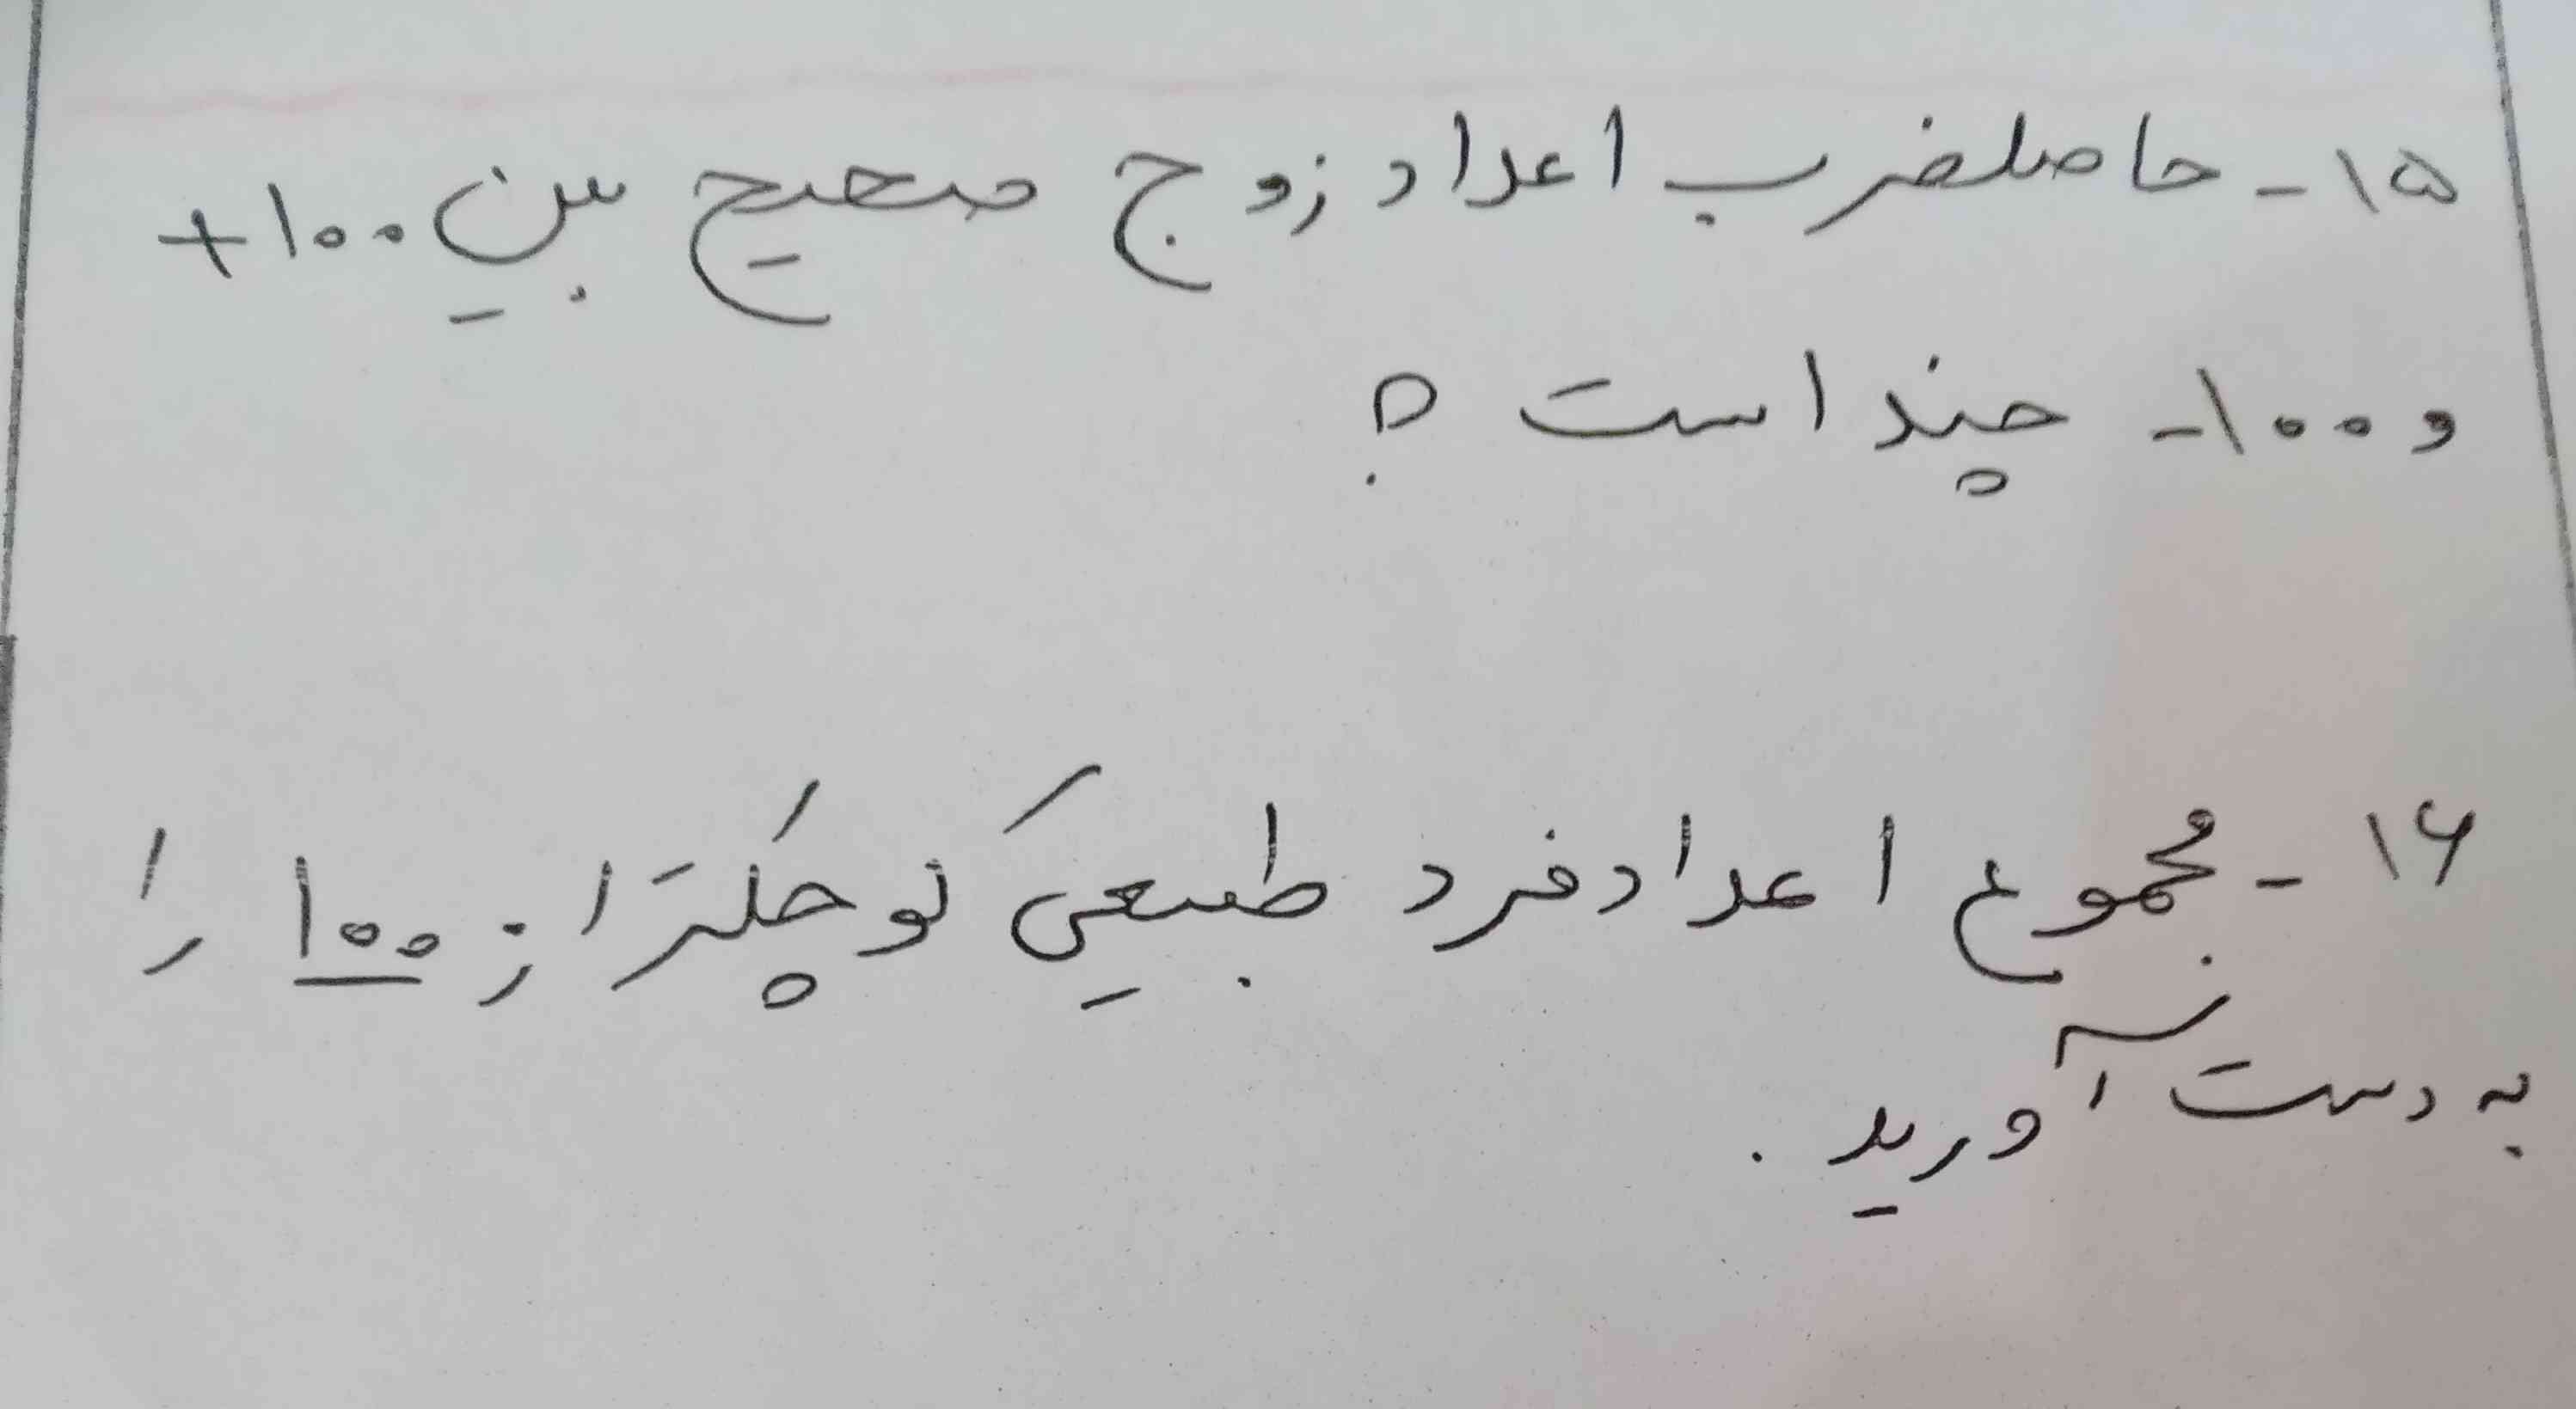 ۱۵- حاصلضرب اعداد زوج صحیح بین ۱۰۰+
و ۱۰۰- چند است ؟
۱۶- مجموع اعداد فرد طبیعی کوچکتر از ۱۰۰ را
به دست آورید .